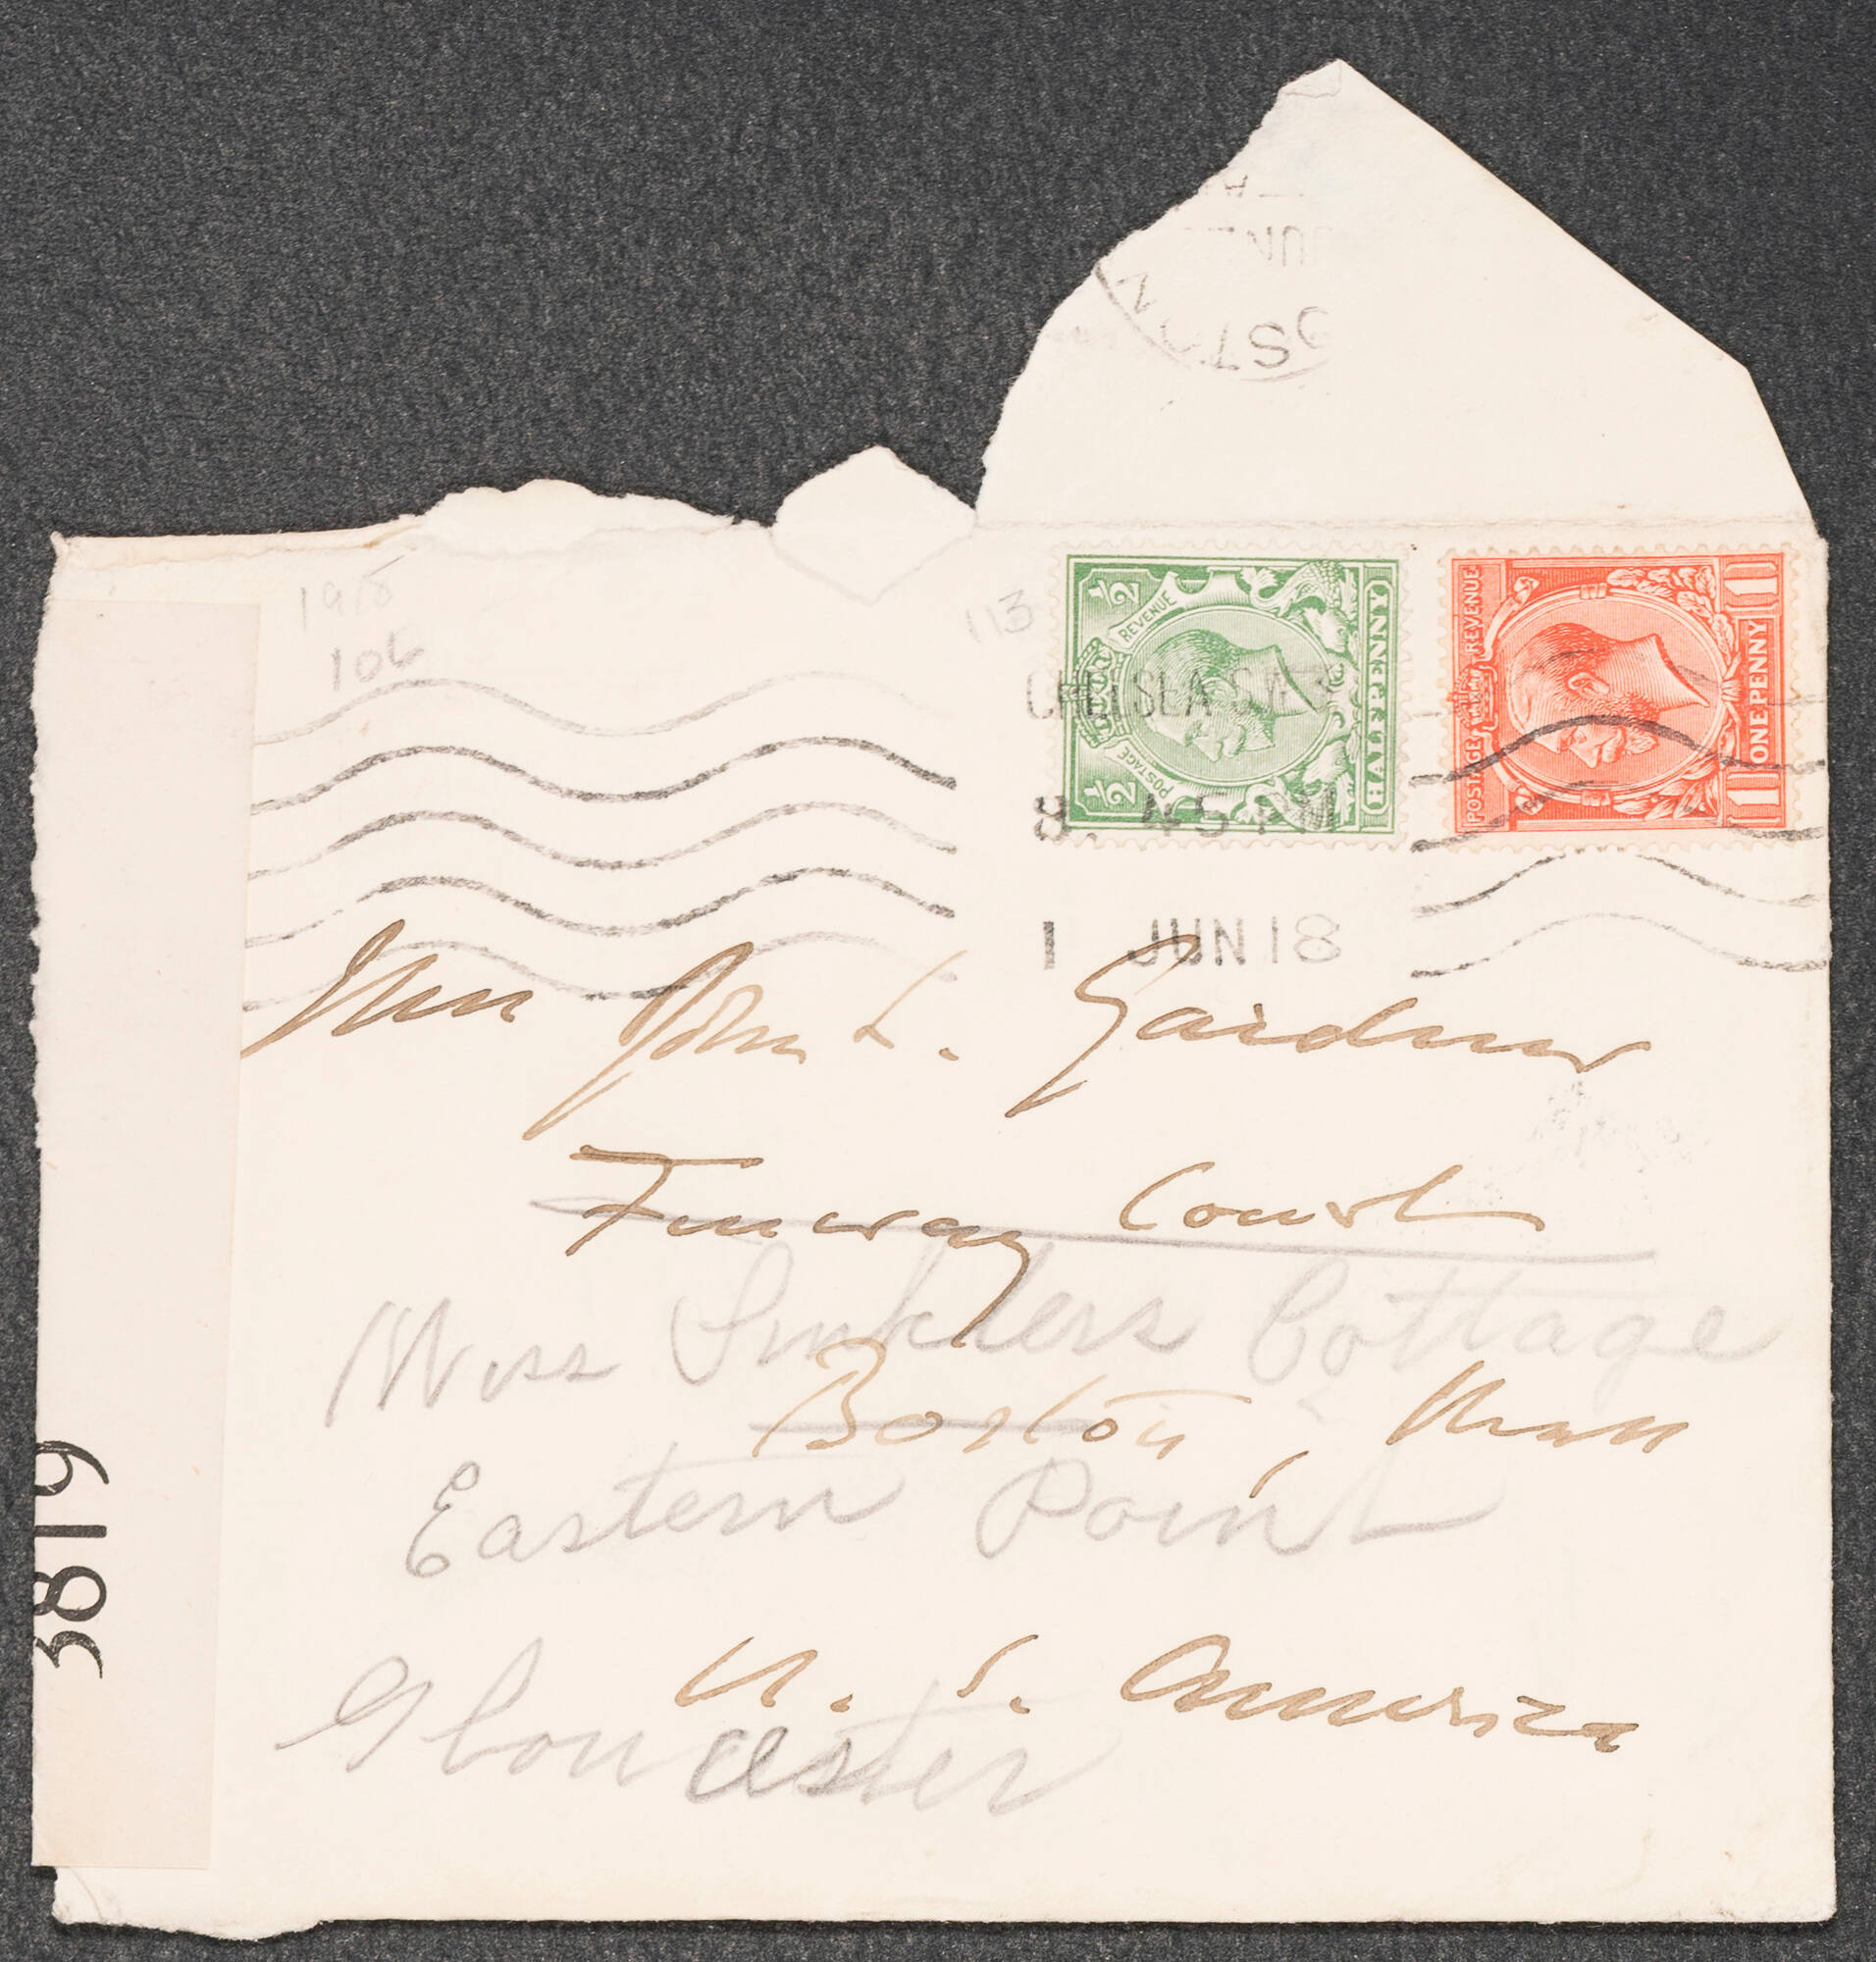 STON
JUN
1915
106
113
½ REVENUE POSTAGE ½ HALFPENNY
POSTAGE REVENUE 1 ONE PENNY 1
CHELSEA S.W.3
8. 45 PM
1 JUN 18
Mrs John L. Gardner
Fenway Court
Miss Sinklers Cottage
Boston, Mass
Eastern Point
U. S. America
Gloucester
3819